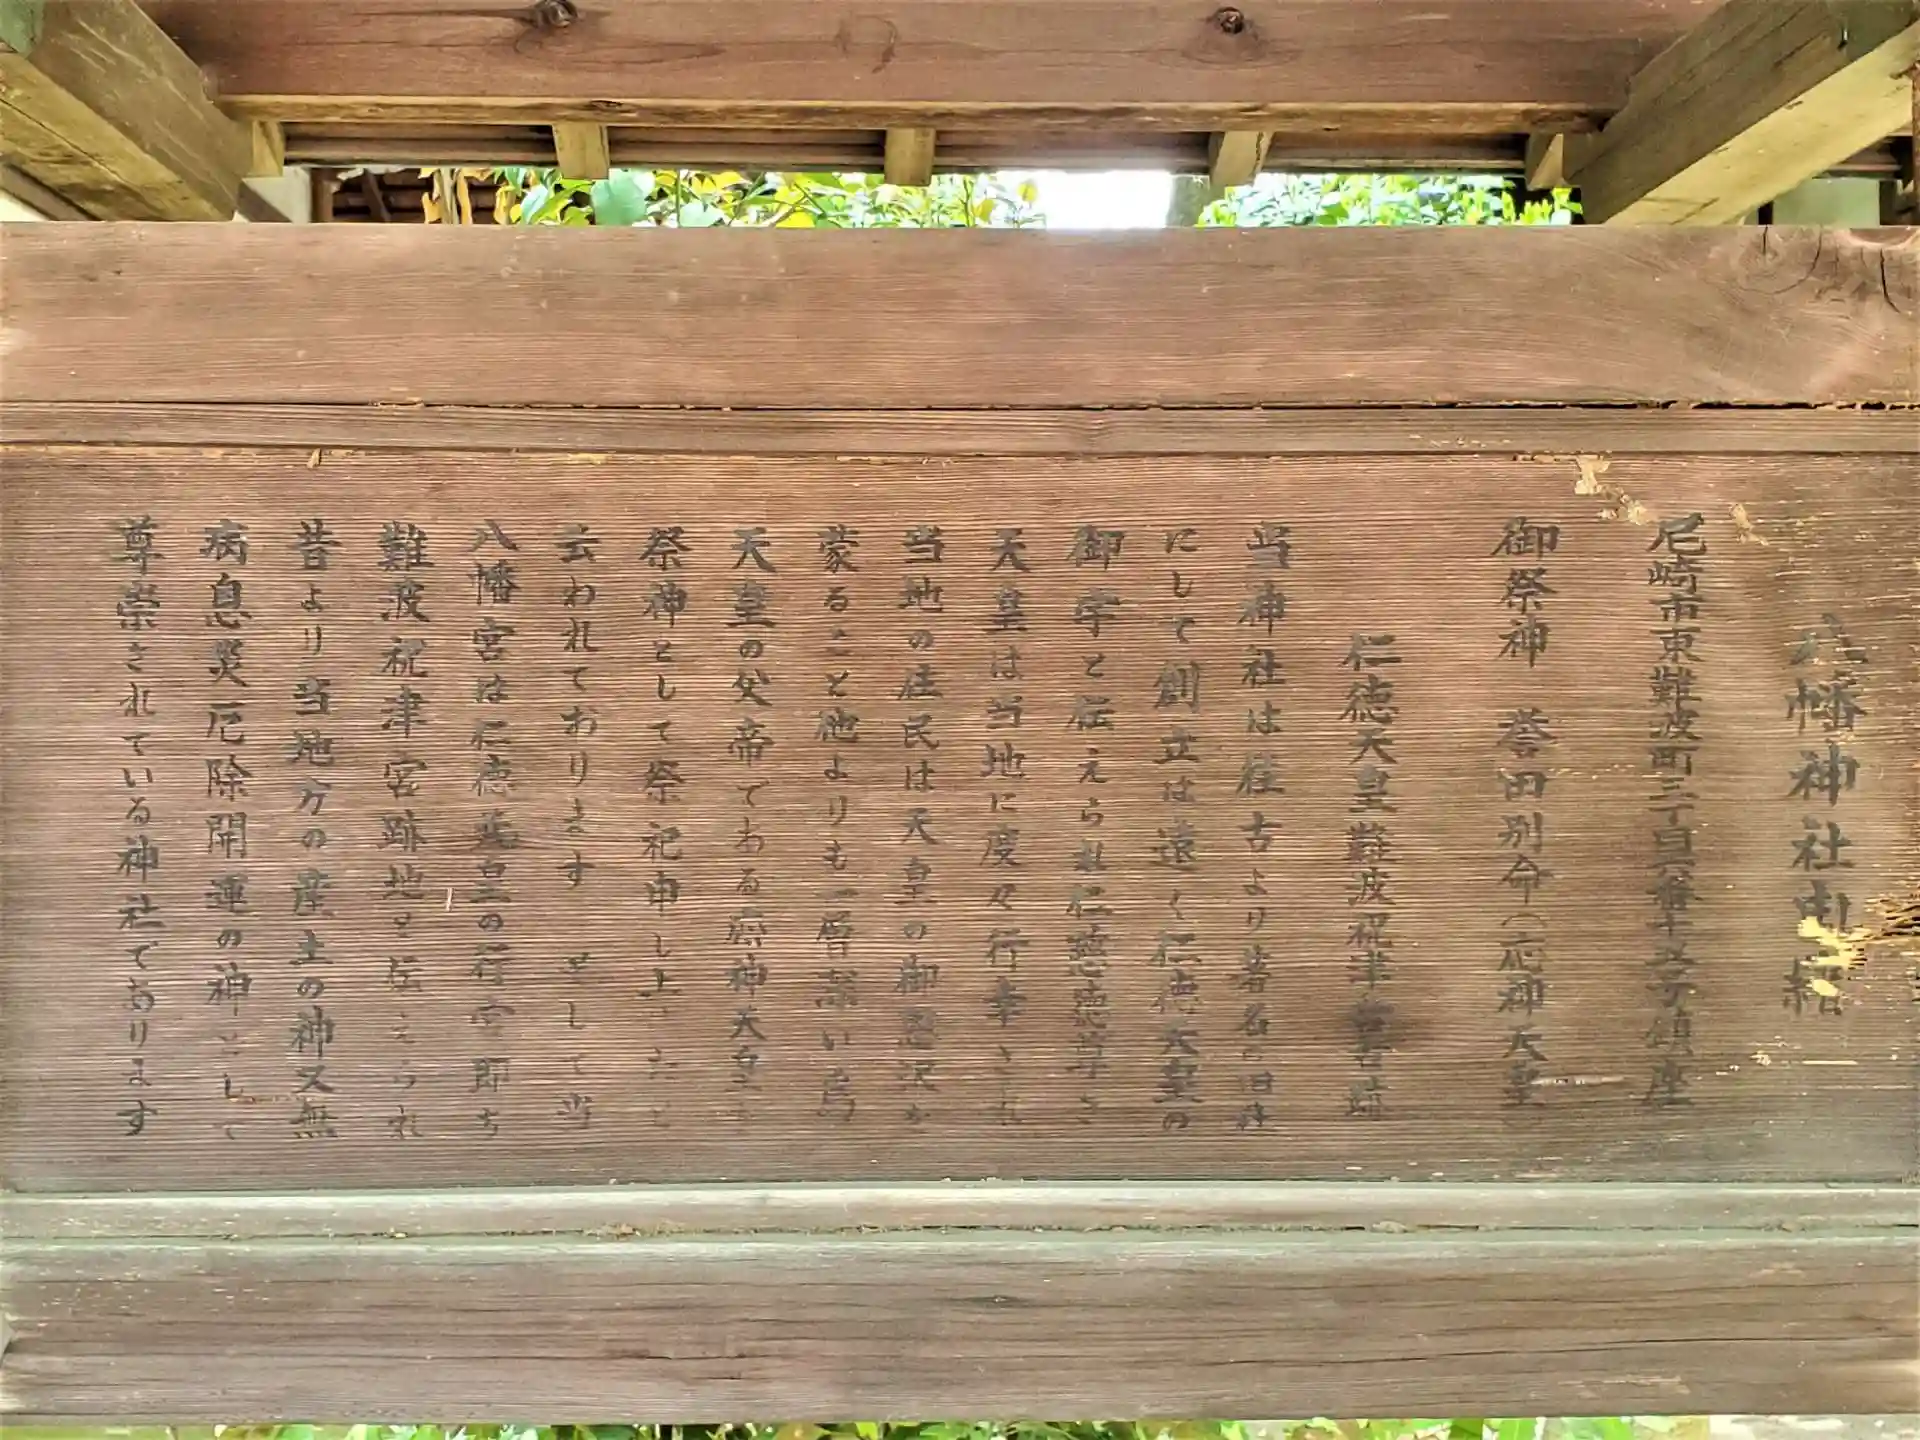 八幡神社由緒
尼崎市東難波町三丁目六番十五号鎮座
御祭神 誉田別命(応神天皇)
仁徳天皇難波祝津宮旧跡
当神社は往古より著名の旧社
にして創立は遠く仁徳天皇の
御宇と伝えられ仁慈徳尊き
天皇は当地に度々行幸され
当地の住民は天皇の御恩沢を
蒙ること他よりも一層深い為
天皇の父帝である応神天皇を
祭神として祭祀申し上げたと
云われております そして当
八幡宮は仁徳天皇の行宮即ち
難波祝津宮跡地と伝えられ
昔より当地方の産土の神又無
病息災厄除開運の神として
尊崇されている神社であります